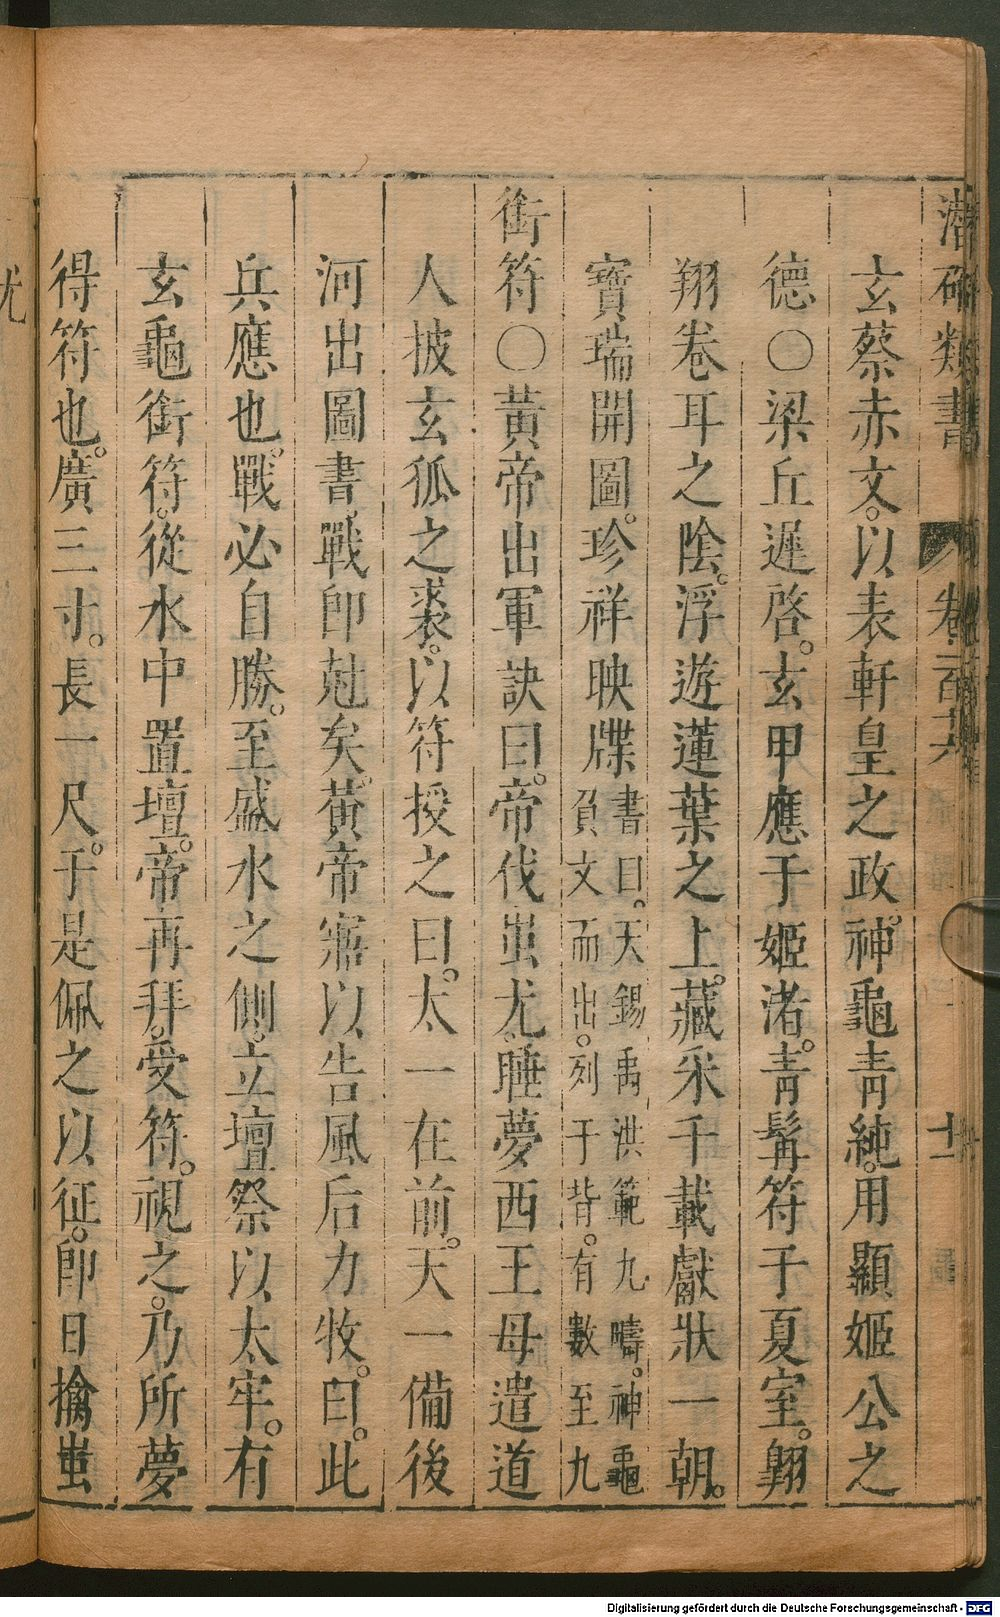 潛確類書 卷一百十六 十一
玄蔡赤文。以表軒皇之政。神龜靑純。用顯姬公之
德〇梁丘遲啓。玄甲應于姬渚。靑髯符于夏室。翱
翔卷耳之陰。浮遊蓮葉之上。藏采千載獻狀一朝。
寶瑞開圖。珍祥映牒書曰。天錫禹洪範九疇。神龜負文而出。列于背。有數至九
銜符〇黃帝出軍訣曰。帝伐蚩尤。睡夢西王母遣道
人披玄狐之裘。以符授之曰。太一在前。天一備後
河出圖書。戰卽尅矣。黃帝寤以告風后力牧。曰。此
兵應也。戰必自勝。至盛水之側。立壇祭以太牢。有
玄龜銜符。從水中置壇。帝再拜。受符。視之。乃所夢
得符也。廣三寸。長一尺。于是佩之以征。卽日擒蚩
尤
Digitalisierung gefördert durch die Deutsche Forschungsgemeinschaft - DFG